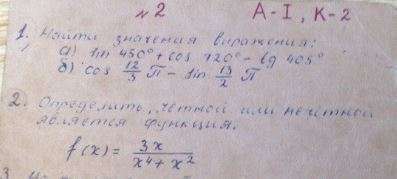 №2 А-I, К-2
1. Найти значения виражения:
а) sin 450° + cos 720° - tg 405°
б) cos 12/3 π - sin 13/2 π
2. Определить, четной или нечетной
является функция.
f(x) = 3x / x⁴ + x²
3.